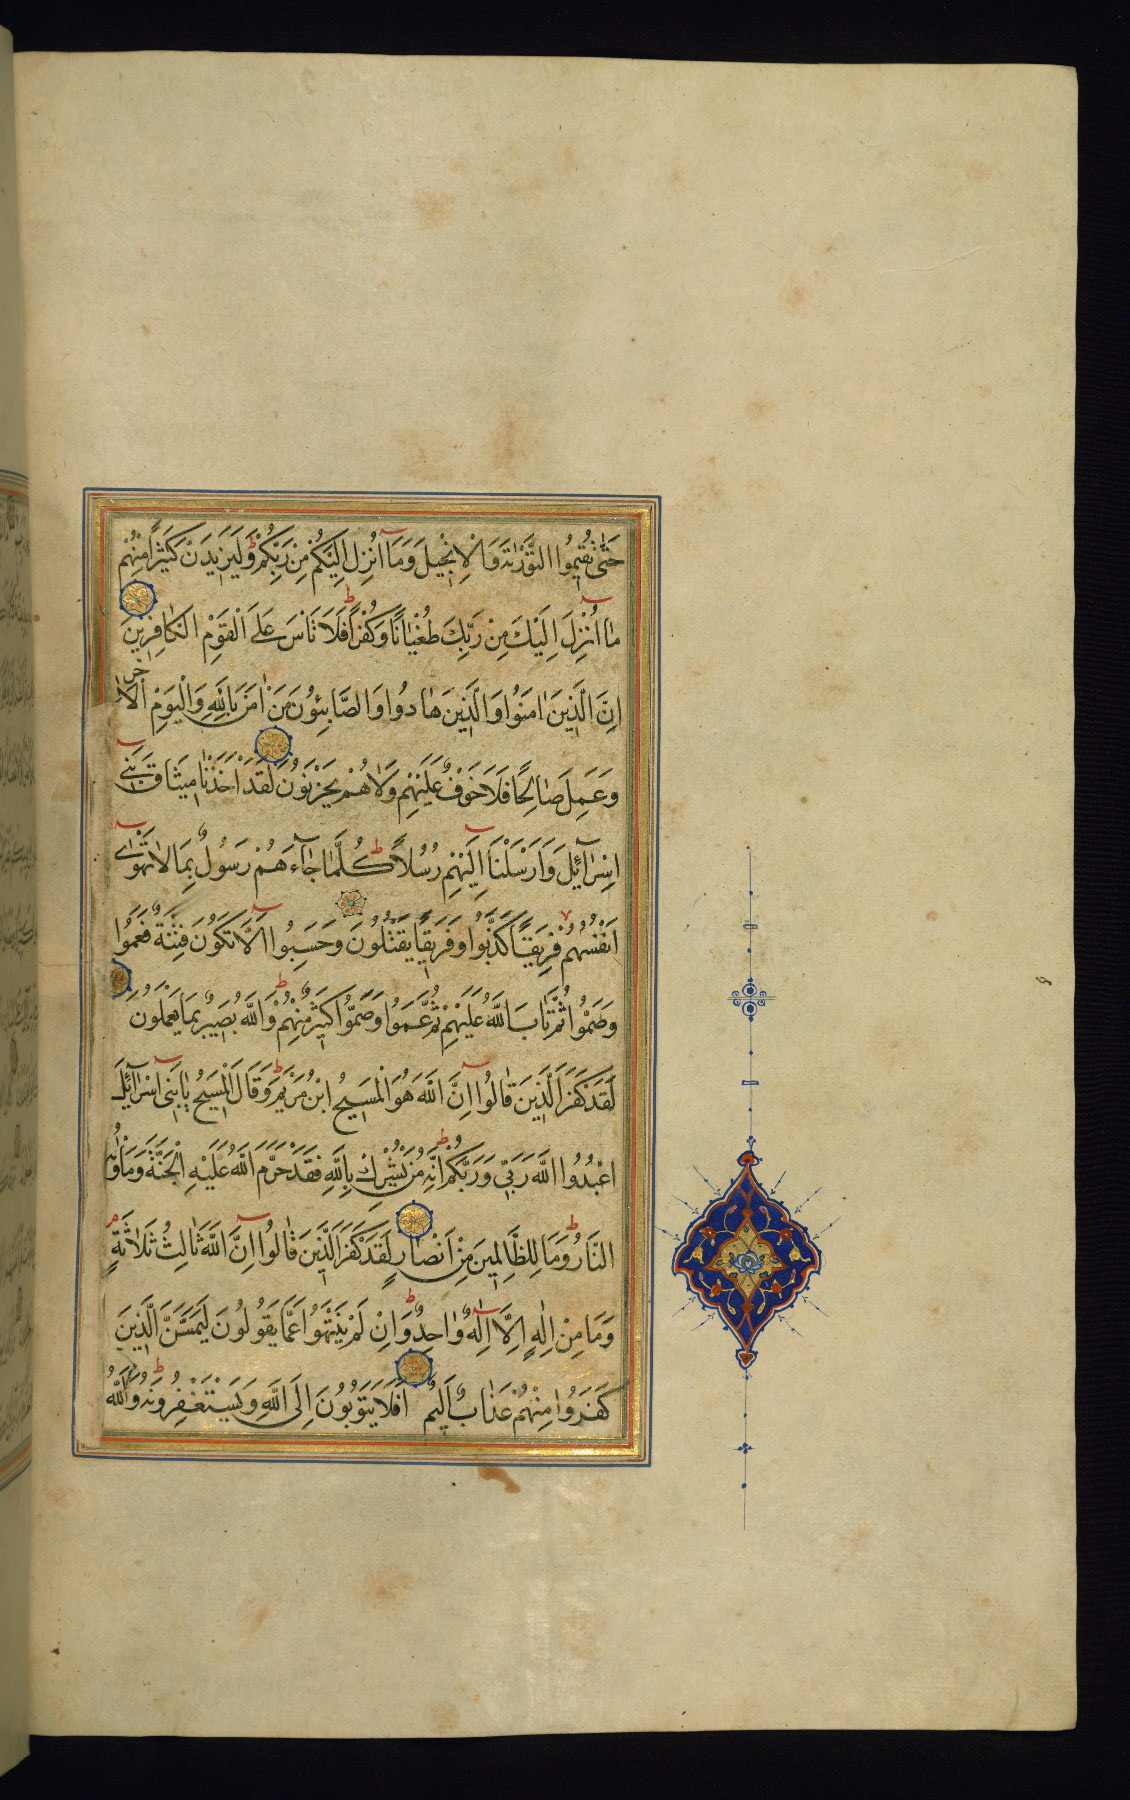 حَتّٰى تُقِيمُوا التَّوْرٰيةَ وَالْاِنْجِيلَ وَمَآ اُنْزِلَ اِلَيْكُمْ مِنْ رَبِّكُمْ ط وَلَيَزِيدَنَّ كَثِيرًا مِنْهُمْ
مٰا اُنْزِلَ اِلَيْكَ مِنْ رَبِّكَ طُغْيٰانًا وَكُفْرًا ط فَلَا تَاْسَ عَلَى الْقَوْمِ الْكٰافِرِينَ
اِنَّ الَّذِينَ اٰمَنُوا وَالَّذِينَ هٰادُوا وَالصَّابِئُونَ مَنْ اٰمَنَ بِاللّٰهِ وَالْيَوْمِ الْاٰخِرِ
وَعَمِلَ صٰالِحًا فَلَا خَوْفٌ عَلَيْهِمْ وَلَا هُمْ يَحْزَنُونَ لَقَدْ اَخَذْنٰا مِيثٰاقَ بَنِي
اِسْرٰآئِيلَ وَاَرْسَلْنَآ اِلَيْهِمْ رُسُلًا ط كُلَّمٰا جٰآءَهُمْ رَسُولٌ بِمَا لٰا تَهْوٰى
اَنْفُسُهُمْ فَرِيقًا كَذَّبُوا وَفَرِيقًا يَقْتُلُونَ وَحَسِبُوا اَلَّا تَكُونَ فِتْنَةٌ فَعَمُوا
وَصَمُّوا ثُمَّ تٰابَ اللّٰهُ عَلَيْهِمْ ثُمَّ عَمُوا وَصَمُّوا كَثِيرٌ مِنْهُمْ ط وَاللّٰهُ بَصِيرٌ بِمٰا يَعْمَلُونَ
لَقَدْ كَفَرَ الَّذِينَ قٰالُوا اِنَّ اللّٰهَ هُوَ الْمَسِيحُ ابْنُ مَرْيَمَ ط وَقَالَ الْمَسِيحُ يٰابَنِى اِسْرٰآئِيلَ
اعْبُدُوا اللّٰهَ رَبِّي وَرَبَّكُمْ ط اِنَّهُ مَنْ يُشْرِكْ بِاللّٰهِ فَقَدْ حَرَّمَ اللّٰهُ عَلَيْهِ الْجَنَّةَ وَمَأْوٰيهُ
النَّارُ ط وَمَا لِلظَّالِمِينَ مِنْ اَنْصٰارٍ لَقَدْ كَفَرَ الَّذِينَ قٰالُوا اِنَّ اللّٰهَ ثٰالِثُ ثَلٰاثَةٍ م
وَمَا مِنْ اِلٰهٍ اِلَّا اِلٰهٌ وٰاحِدٌ ط وَاِنْ لَمْ يَنْتَهُوا عَمَّا يَقُولُونَ لَيَمَسَّنَّ الَّذِينَ
كَفَرُوا مِنْهُمْ عَذٰابٌ اَلِيمٌ اَفَلَا يَتُوبُونَ اِلَى اللّٰهِ وَيَسْتَغْفِرُونَهُ ط وَاللّٰهُ